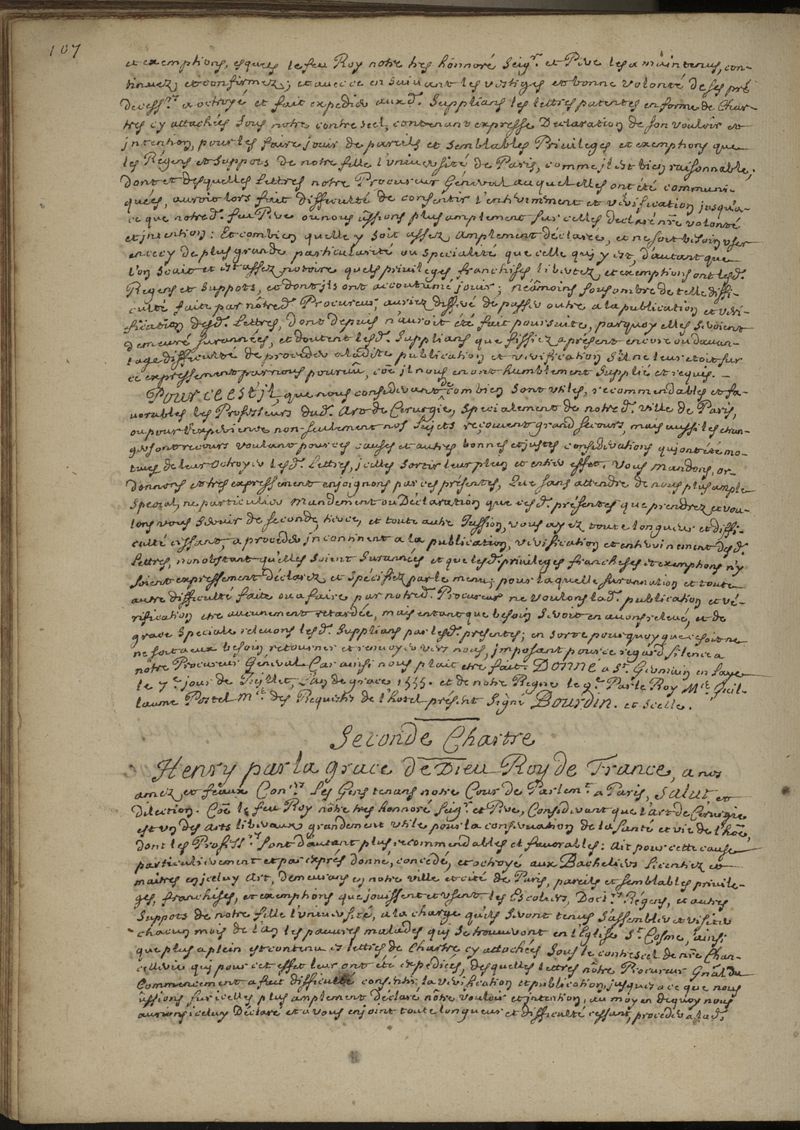 107
et exemptions, esquels le feu Roy notre tres honnoré Seigr. et Pere les a maintenus, con-
tinuez et confirmez; et avec ce en suivant les vestiges et bonne volonté de ses pré
decessrs. a octroyé et fait expedier auxd. Supplians les lettres patentes en forme de Char-
tres cy attachées sous notre contre scel, contenant expresse Declaration de son vouloir et
intention, pour les faire jouir de pareils et semblables Privileges et exemptions que
les Régens et Suppots de notre fille l'université de Paris, comme il est bien raisonnable.
Dont et desquelles Lettres notre Procureur Géneral auquel elles ont été communi-
quées, auroit lors fait difficulté de consentir l'enterinement et verification jusqu'a
ce que notred. feu Pere ou nous ussions plus amplement sur celles declaré nre. volonté
et intention: Et combien quelle y soit assez amplement declarée, et ne soit besoin user
en cecy de plus grande particularité ou specialité que celle qui y est, d'autant que
l'on scait et est assez notoire quels privileges franchises libertez et exemptions ont lesd.
Regens et Suppots, et dont ils ont accoutumé jouir; neamoins sous ombre de telle diffi-
culté faite par notred. Procureur, auriez differé de passer outre a la publication et veri-
fication desd. Lettres, dont depuis n'auroit été fait poursuite, parquoy elles seroient
demeuré surannées, et doutent lesd. Supplians que fissiez apresent encore ou davan-
tage difficulté de proceder a ladite publication et verification s'il ne leur etoit sur
ce expressement par nous pourvu, coe il nous en ont humblement supplié et requis. –
Pour ce est il, que nous considerant de combien sont utiles, recommendables et fa-
uorables les Professeurs dud. Art de Cirurgie, specialement de notred. ville de Paris,
ou pour l'experience non seulement nos Sujets reçoivent grand secours, mais aussi les étran-
gers ont recours voulant pour ces causes et autres bonnes et justes considerations qui ont été mo-
tives de leur octroyer lesd. Lettres, icelles sortir leur plein et entier effet. Vous mandons, or-
donnons et tres expressement enjoignons par ces présentes, Que sans attendre de nous plus ample
special, ne particulier mandement ou Declaration que cesd. présentes que prendrez et vou-
lons vous servir de seconde, tierce, et toute autre Jussion, vous ayez toute longueur et diffi-
culté cessant, a proceder incontinent a la publication, verification et enterinement desd.
Lettres, nonobstant qu'elles soient Surannées et que lesd. privileges franchises et exemptions n'y
soient expressement declarez et specifiez par le menu; pour laquelle surannation et toute
autre difficulté faite ou a faire par notred. Procureur ne voulons lad. publication et vé-
rification etre aucunement retardée, mais entant que besoin seroit en avons relevé, et de
grace speciale relevons lesd. Supplians par lesd. présentes; en sorte pour quoy que ce soit ne
ne soit aux besoin retourner et renvoyer vers nous, imposant pour ce regard silence a
notre Procureur Géneral Car ainsi nous plait etre fait. DONNÉ a St. Germain en Laye
le 7e. jour de Juillet, L'an de grace 1555. et de notre Regne le 9e. Par le Roy Me. Guil-
laume Postel me. des Requestes de l'hotel présent Signé Bourdin. et scellé.
Seconde Chartre
Henry par la grace de Dieu Roy de France, a nos
amez et feaux Conrs. Les Gens tenans notre Cour de Parlemt. a Paris, Salut et
Dilection. Coe le feu Roy notre tres honnoré Seigr. et Pere, Considerant que l'art de Cirurgie
est un des Arts liberaux grandement utile pour la conservation de la santé et vie de l'hoe,
dont les Professrs. sont d'autant plus recommendables et favorables: Ait pour cette cause
particulierement et par exprés donné, concedé, et octroyé aux Bacheliers Licentiez et
maitres en iceluy Art, demeurans en notre ville et cité de Paris, pareils et semblables privile-
ges, franchises, et exemptions que jouissent et usent les Ecoliers, Doctrs. Régens, et autres
Suppots de notre fille l'université, a la charge quils seront tenus s'assembler et visiter
chacun mois de l'an les pauvres malades qui se trouveront en l'Eglise St. Cosme, ainsi
que plus a plein est contenu es lettres de Chartre cy attachées sous le contrescel de nre Chan-
cellerie qui pour cet effet leur ont été expediées, desquelles lettres notre Procureur Gnal du
Commencement a fait difficulté consentir la verification et publication, jusques a ce que nous
ussions sur icelles plus amplement declaré notre vouloir et jntention, au moyen dequoy nous
aurions iceluy declaré et a vous enjoint toute longueur et difficulté cessant, proceder a lad.